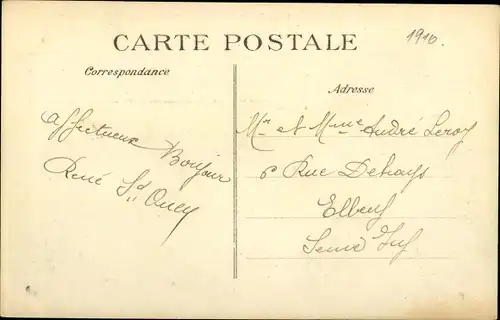 1910.
CARTE POSTALE
Correspondance
Adresse
Affectueux Bonjour
René
Mr et Mme André Leroy
6 Rue
Elbeuf
Seine Inf